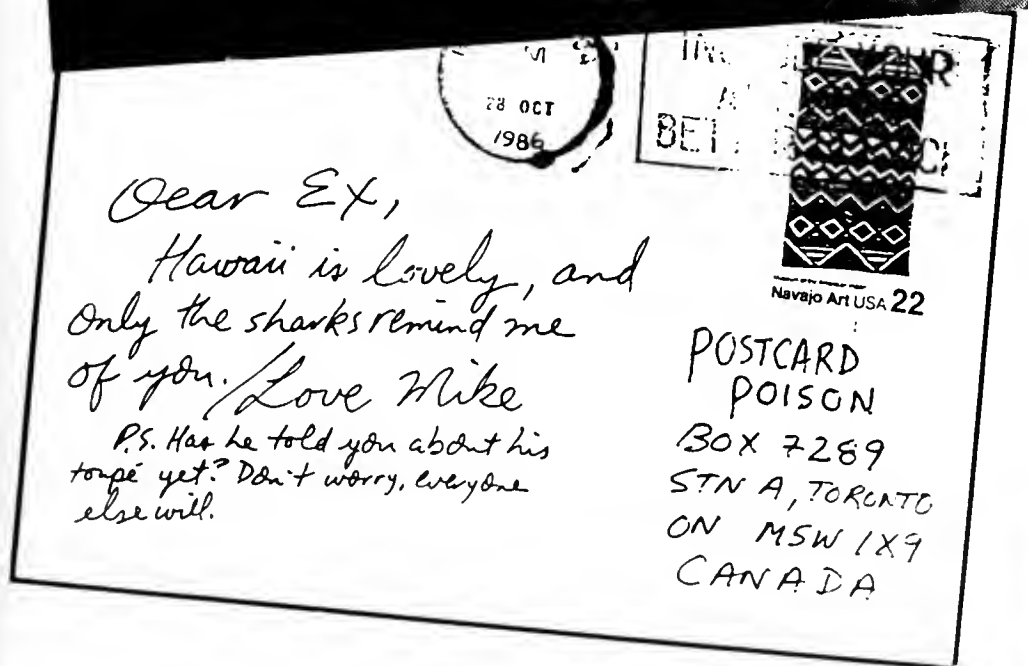 28 OCT
1986
YOUR
Navajo Art USA 22
Dear Ex,
Hawaii is lovely, and
only the sharks remind me
of you. / Love Mike
P.S. Has he told you about his
toupé yet? Don't worry, everyone
else will.
POSTCARD
POISON
BOX 7289
STN A, TORONTO
ON M5W 1X9
CANADA